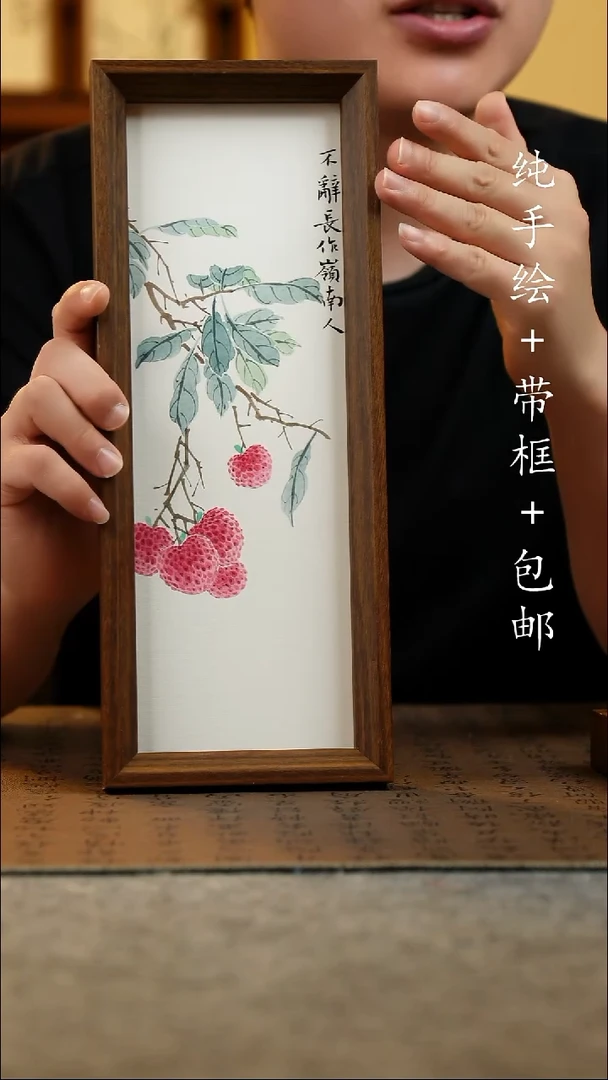 不辭長作嶺南人
纯手绘+带框+包邮